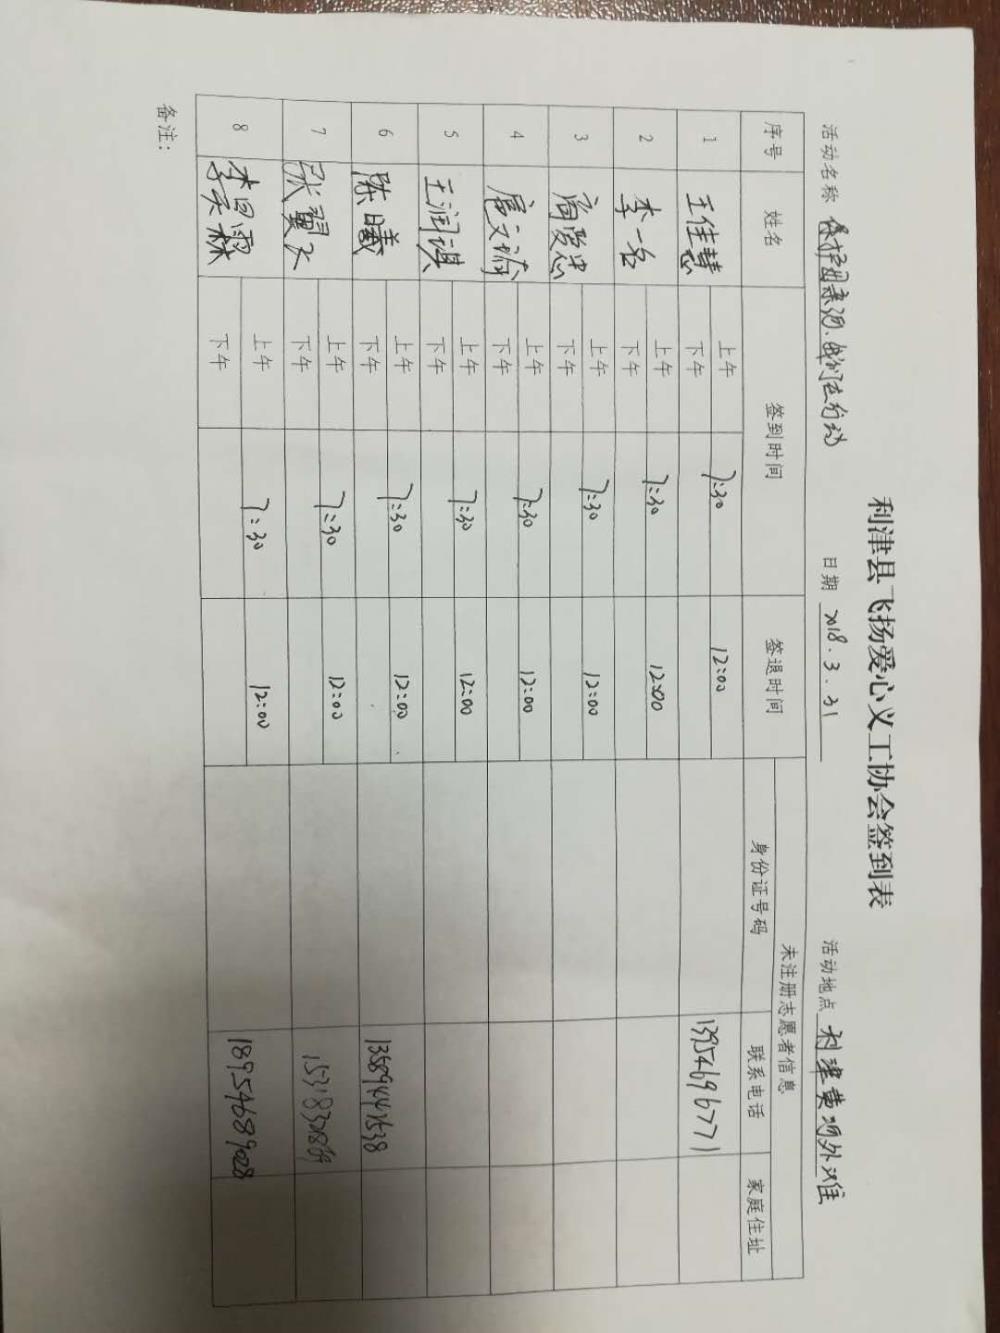 利津县飞扬爱心义工协会签到表
活动名称 保护母亲河.我们在行动 日期 2018.3.31 活动地点 利津黄河外滩
序号 姓名 签到时间 签退时间 未注册志愿者信息
身份证号码 联系电话 家庭住址
1 王佳慧 上午 7:30 12:00 13954696771
下午
2 李一名 上午 7:30 12:00
下午
3 上午 7:30 12:00
下午
4 扈文瑜 上午 7:30 12:00
下午
5 王润淇 上午 7:30 12:00
下午
6 陈曦 上午 7:30 12:00
下午
7 张翼飞 上午 7:30 12:00
下午
8 李昊霖 上午 7:30 12:00 18954689028
下午
备注：